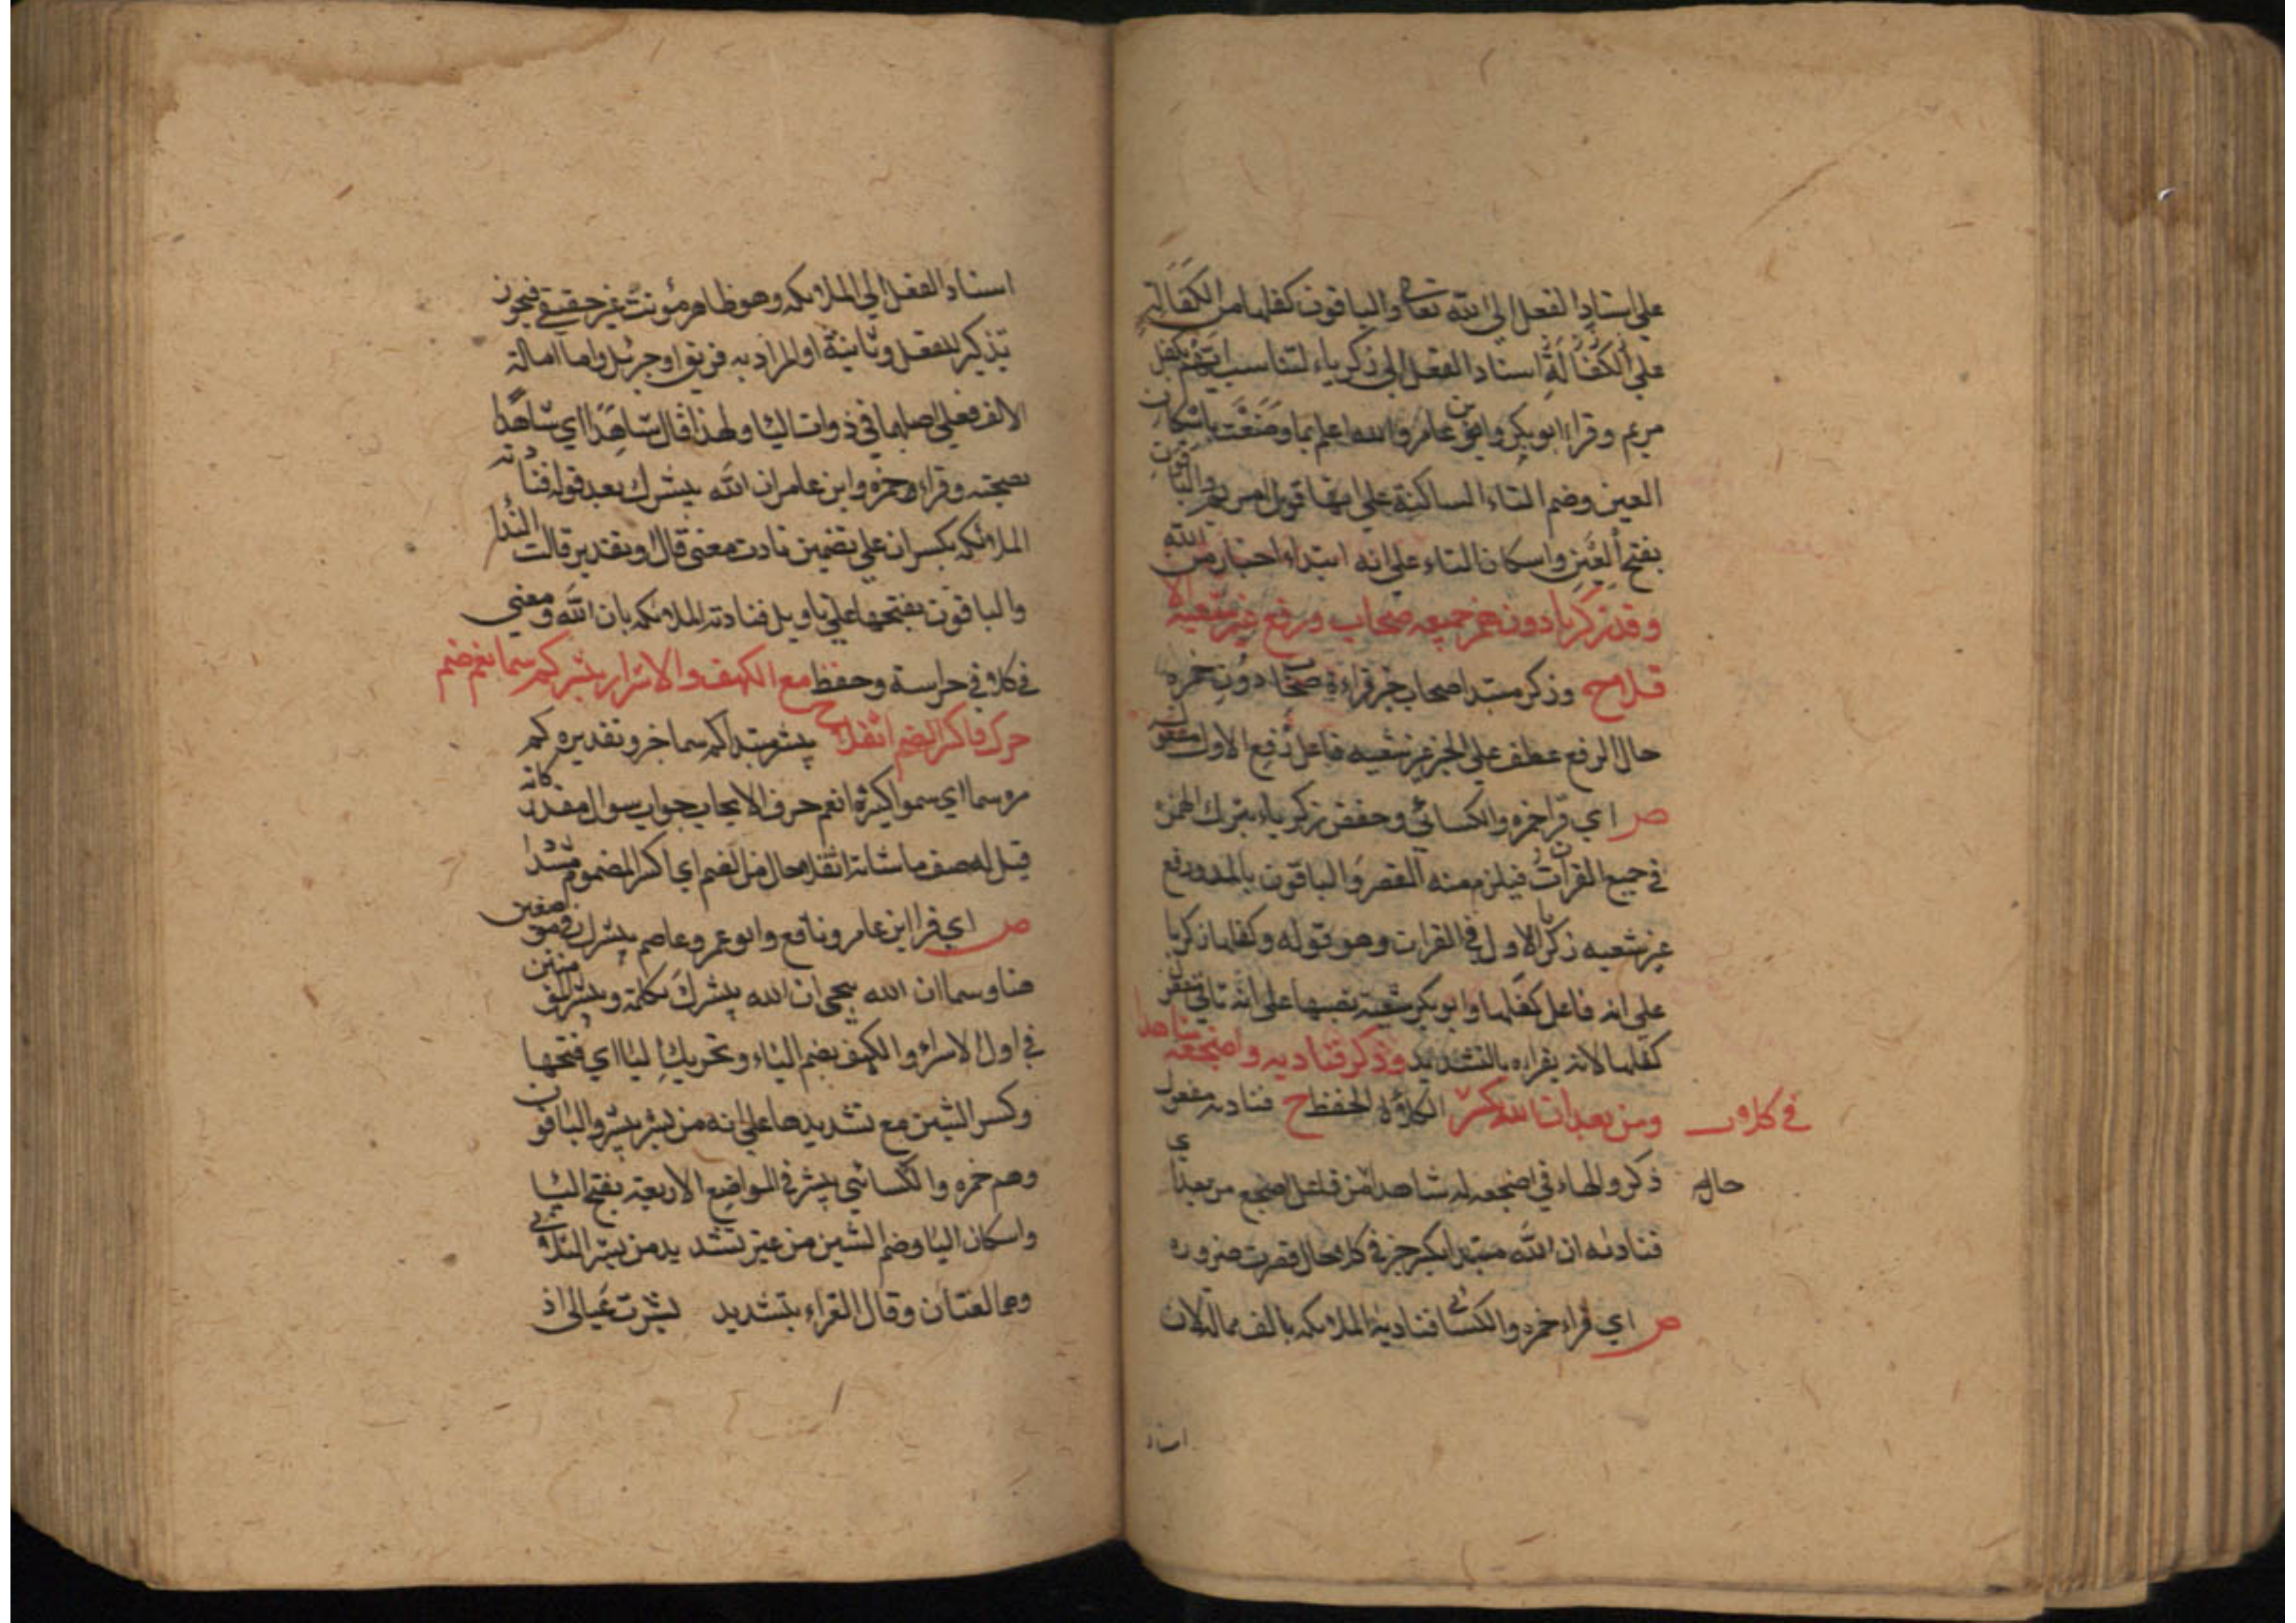 على اسناد الفعل الى الله تعالى والباقون كفلها من الكفالة
على الكفالة اسناد الفعل الى ذكرياء لتناسب ايهم يكفل
مريم وقراء ابو بكر وابن عامر والله اعلم بما وضعت باسكان
العين وضم التاء الساكنة على انها قول ام مريم والباقون
بفتح العين واسكان التاء على انه ابتداء اخبار من الله
وقل زكريا دون همز جميعه صحاب ورفع غير شعبة الا
ولا ح وذكر مبتدا صحاب خبر قراءة صحاب دون همزه
حال الرفع عطف على الخبر غير شعبه فاعل رفع الاول مفعول
ص اي قرا حمزه والكسائي وحفص زكرياء بترك الهمز
في جميع القرآن فيلزم منه القصر والباقون بالمد ورفع
غير شعبه ذكريا الاول في القرات وهو قوله وكفلها زكريا
على انه فاعل كفلها وابو بكر شعبة نصبها على انه ثاني مفعولي
كفلها لانه يقراه بالتشديد وذكر فناديه واضجعه شاهدا
ومن بعد ان الله يكسر في كلاو الكلاؤة الحفظ ح فنادته مفعول
ذكر والهاء في اضجعه له شاهدا من فاعل اضجع من بعد اي حاله
فنادته ان الله مبتدا يكسر خبر في كلا حال قصرت ضروره
ص اي قراء حمزه والكسائي فناديه الملائكه بالف ممالة لان
اسناد
اسناد الفعل الى الملائكه وهو ظاهر مؤنث غير حقيقي فيجوز
تذكير للفعل وتانيثه او المراد به فريق او جبرئل واما امالة
الالف فعلى اصلهما في ذوات اليا ولهذا قال شاهدا اي شاهدا
بصحته وقراء وحمزه وابن عامر ان الله يبشرك بعد قوله فنادته
الملائكه بكسر ان على تضمين نادت معنى قال او تقدير قالت النداء
والباقون بفتحها على تاويل فنادته الملائكه بان الله ومعنى
في كلا في حراسة وحفظ مع الكهف والاسرار يبشر كم سما نعم ضم
حرك واكسر الضم اثقلا ح يبشر مبتدا كم سما خبر وتقديره كم
مره سما اي سموا كيثرة نعم حرف الايجاب جواب سوال مقدر كانه
قيل له صف ما شانه اثقلا حال من الضم اي اكسر المضموم مشددا
ص اي قرا ابن عامر ونافع وابو عمرو وعاصم يبشرك في موضعين
هنا وسما ان الله بيحيى ان الله يبشرك بكلمة ويبشر المؤمنين
في اول الاسراء والكهف بضم الياء وتحريك البا اي فتحها
وكسر الشين مع تشديدها على انه من بشر يبشر والباقون
وهم حمزه والكسائي يبشر في المواضع الاربعة بفتح اليا
واسكان البا وضم الشين من غير تشديد من بشر الثلاثي
وهما لغتان وقال الفراء بتشديد بشرت عيالي اذ